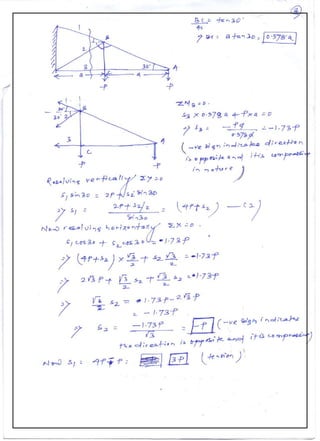 2
1
B
2
3
30°
A
a
a
P
P
BC/AC = tan 30°
=> BC = a tan 30, 0.578 a
30°
B
3
C
A
P
P
ΣMB = 0.
S3 x 0.578 a + P x a = 0
=> S3 = - Pa / 0.578 a = -1.73 P
(-ve sign indicates direction
is opposite and it is compressive
in nature)
Resolving vertically ΣY = 0
S1 sin 30 = 2P + S2 sin 30
=> S1 = 2P + S2/2 / sin 30 = (4P + S2) — (2)
Now resolving horizontally ΣX = 0.
S1 cos 30 + S2 cos 30 = 1.73 P
=> (4P + S2) x √3/2 + S2 √3/2 = 1.73 P
=> 2√3 P + √3/2 S2 + √3/2 S2 = 1.73 P
=> S2 = 1.73 P - 2√3 P
= -1.73 P
=> S2 = -1.73 P / √3 = -P (-ve sign indicates
the direction is opposite and it is compressive)
Now S1 = 4P - P = 3P (tension)